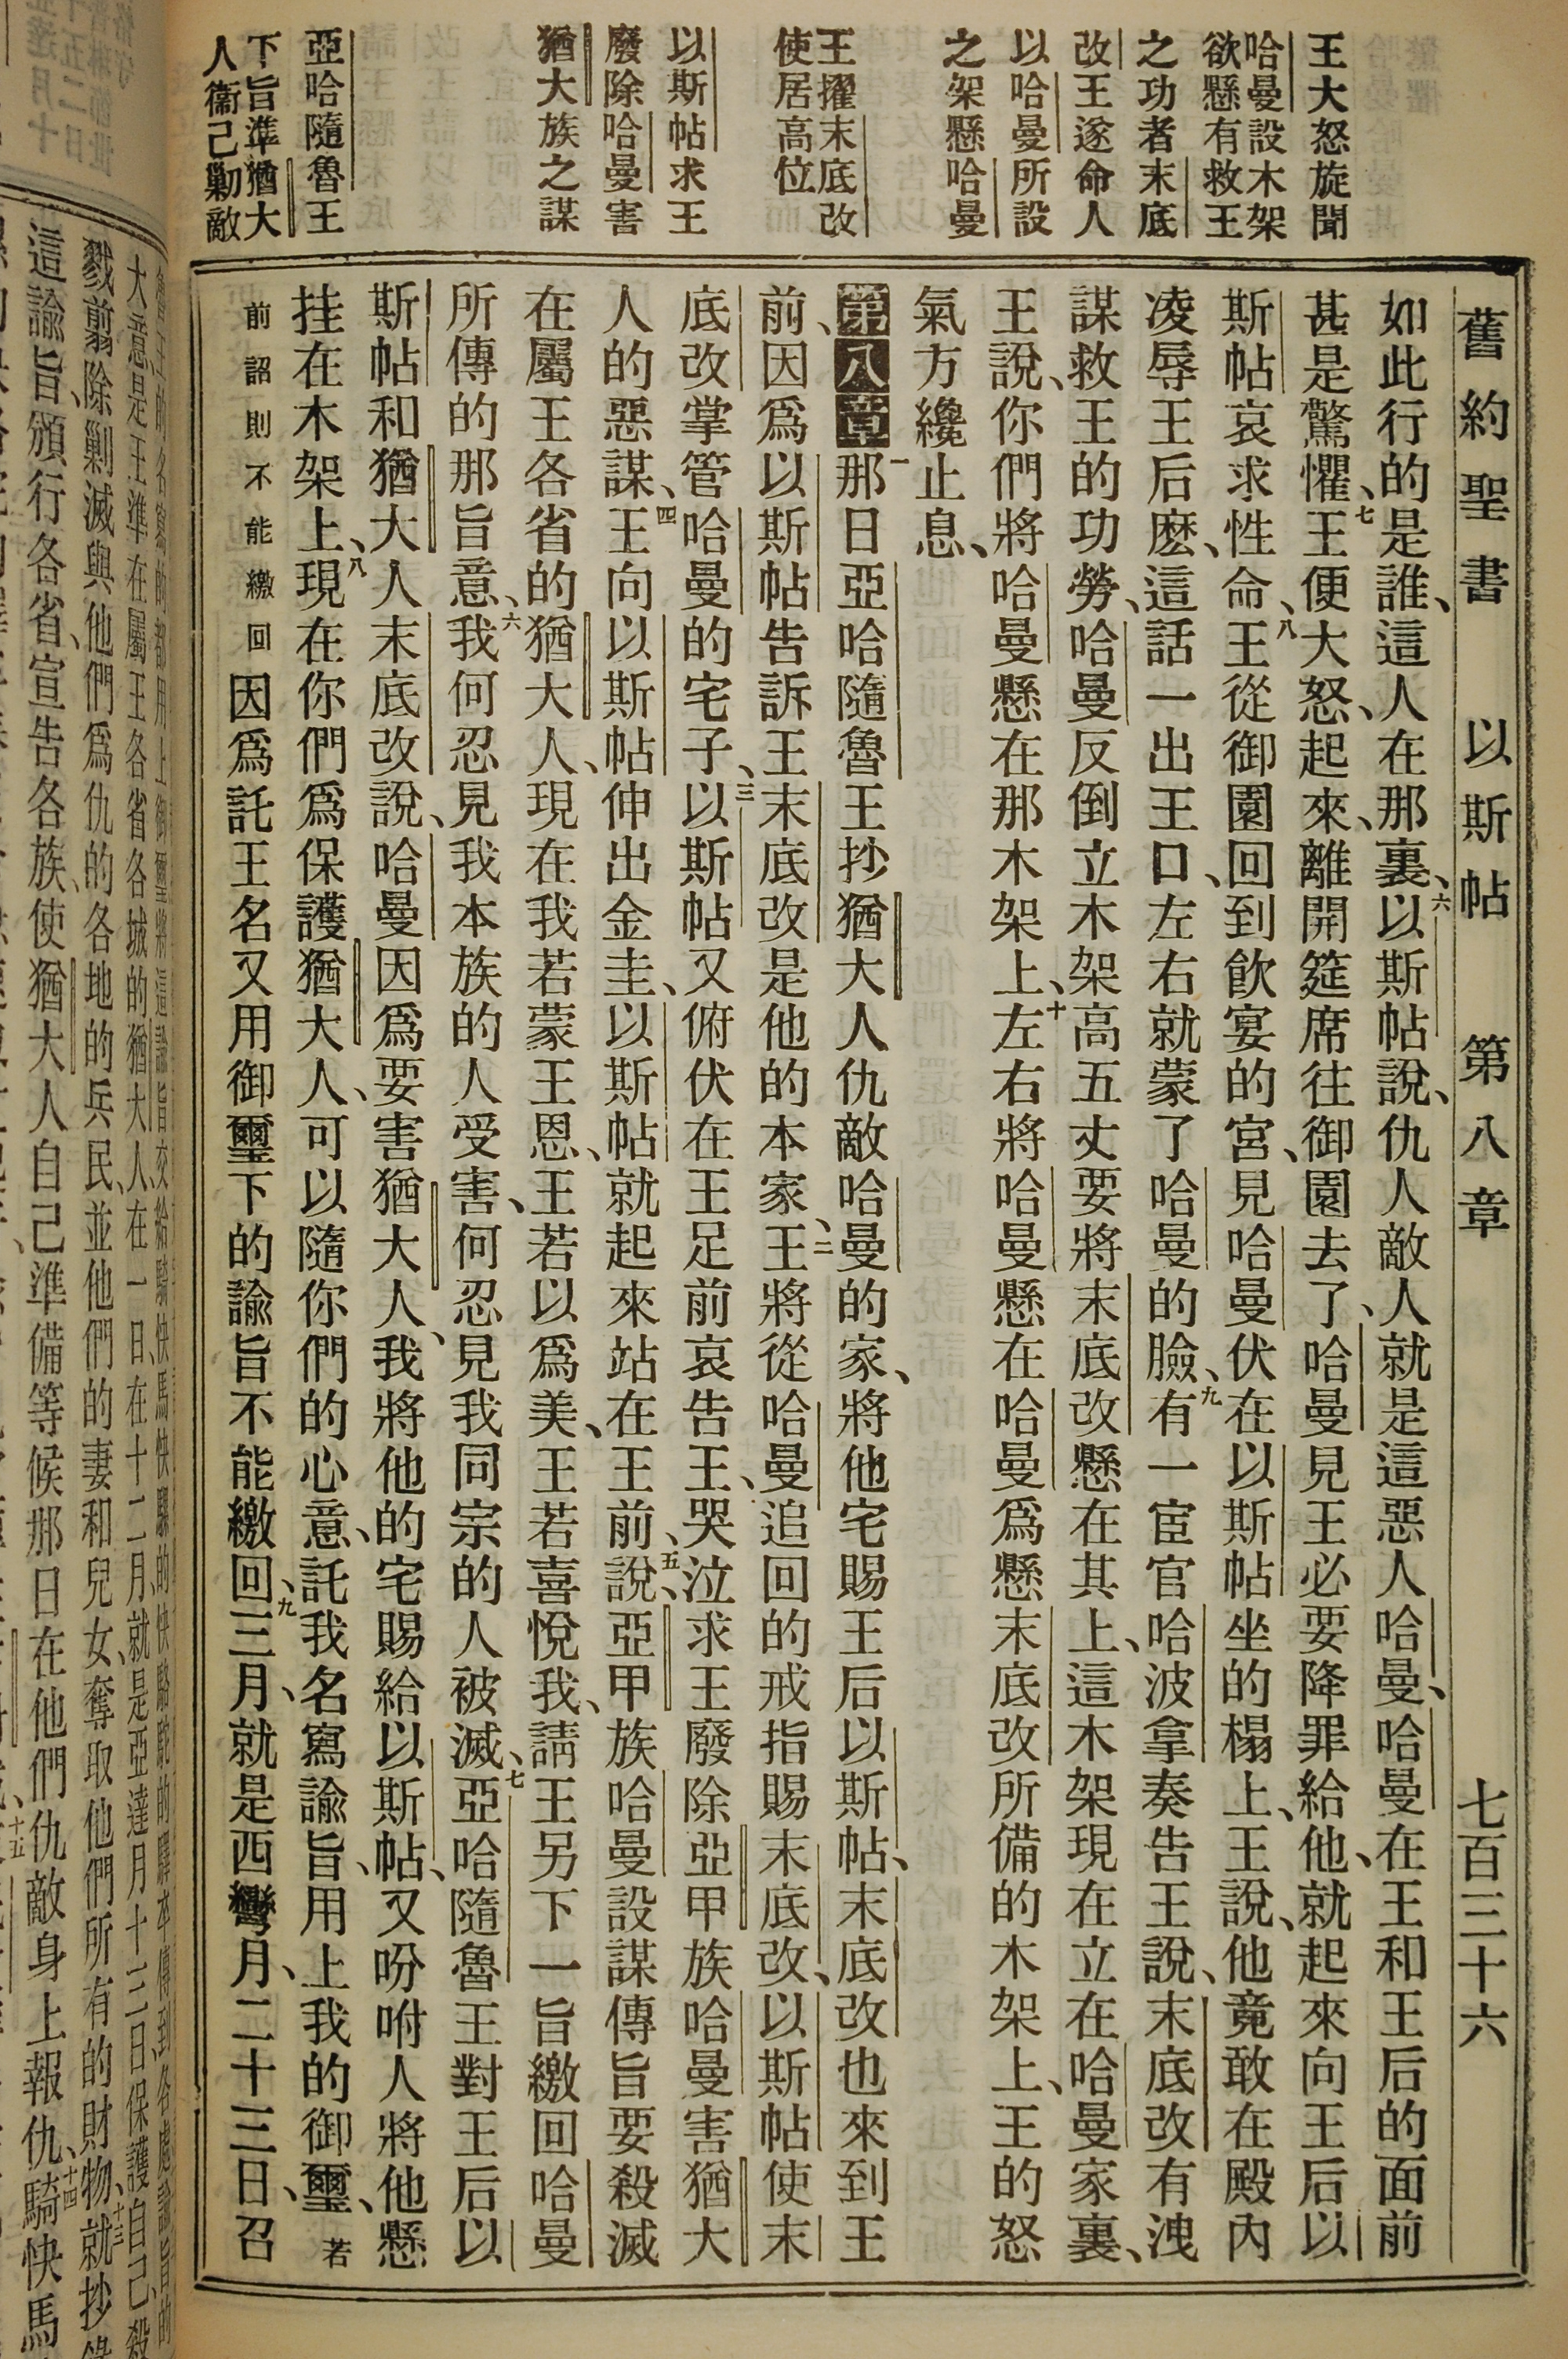 舊約聖書　以斯帖　第八章　七百三十六
王大怒旋聞
哈曼設木架
欲懸有救王
之功者末底
改王遂命人
以哈曼所設
之架懸哈曼
王擢末底改
使居高位
以斯帖求王
廢除哈曼害
猶大族之謀
亞哈隨魯王
下旨準猶大
人衞己勦敵
如此行的是誰、這人在那裏、六以斯帖說、仇人敵人就是這惡人哈曼、哈曼在王和王后的面前
甚是驚懼、七王便大怒、起來、離開筵席往御園去了、哈曼見王必要降罪給他、就起來向王后以
斯帖哀求性命、八王從御園回到飲宴的宮、見哈曼伏在以斯帖坐的榻上、王說、他竟敢在殿內
凌辱王后麽、這話一出王口、左右就蒙了哈曼的臉、九有一宦官哈波拿奏告王說、末底改有洩
謀救王的功勞、哈曼反倒立木架高五丈要將末底改懸在其上、這木架現在立在哈曼家裏、
王說、你們將哈曼懸在那木架上、十左右將哈曼懸在哈曼爲懸末底改所備的木架上、王的怒
氣方纔止息、
第八章一那日亞哈隨魯王抄猶大人仇敵哈曼的家、將他宅賜王后以斯帖、末底改也來到王
前、因爲以斯帖告訴王末底改是他的本家、二王將從哈曼追回的戒指賜末底改、以斯帖使末
底改掌管哈曼的宅子、三以斯帖又俯伏在王足前哀告王、哭泣求王廢除亞甲族哈曼害猶大
人的惡謀、四王向以斯帖伸出金圭、以斯帖就起來站在王前、五說、亞甲族哈曼設謀傳旨要殺滅
在屬王各省的猶大人、現在我若蒙王恩、王若以爲美、王若喜悅我、請王另下一旨繳回哈曼
所傳的那旨意、六我何忍見我本族的人受害、何忍見我同宗的人被滅、七亞哈隨魯王對王后以
斯帖和猶大人末底改說、哈曼因爲要害猶大人、我將他的宅賜給以斯帖、又吩咐人將他懸
挂在木架上、八現在你們爲保護猶大人、可以隨你們的心意、託我名寫諭旨、用上我的御璽、若
前詔則不能繳回因爲託王名又用御璽下的諭旨不能繳回、九三月、就是西彎月、二十三日、召
大意、是王準在屬王各省各城的猶大人、在一日、在十二月、就是亞達月十三日保護自己、殺
戮翦除剿滅與他們爲仇的各地的兵民、並他們的妻和兒女、奪取他們所有的財物、十三就抄
這諭旨、頒行各省、宣告各族、使猶大人自己準備等候那日在他們仇敵身上報仇、十四騎快馬